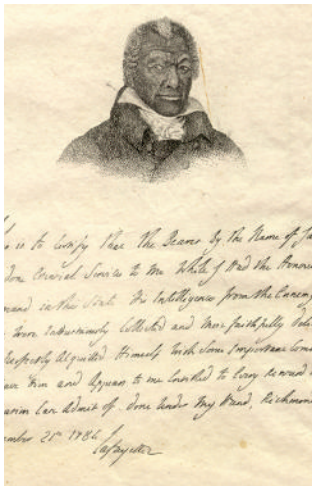 is to Certify that the Bearer By the Name of
done Essential Services to Me While I Had the Honour
mand in this State His Intelligence from the Enemy
were Industriously Collected and More faithfully deli
Perfectly Acquitted Himself with Some Important Com
gave Him and Appears to me Entitled to Every Reward
Situation Can Admit of. Done Under My Hand, Richmon
ember 21st 1784
Lafayette